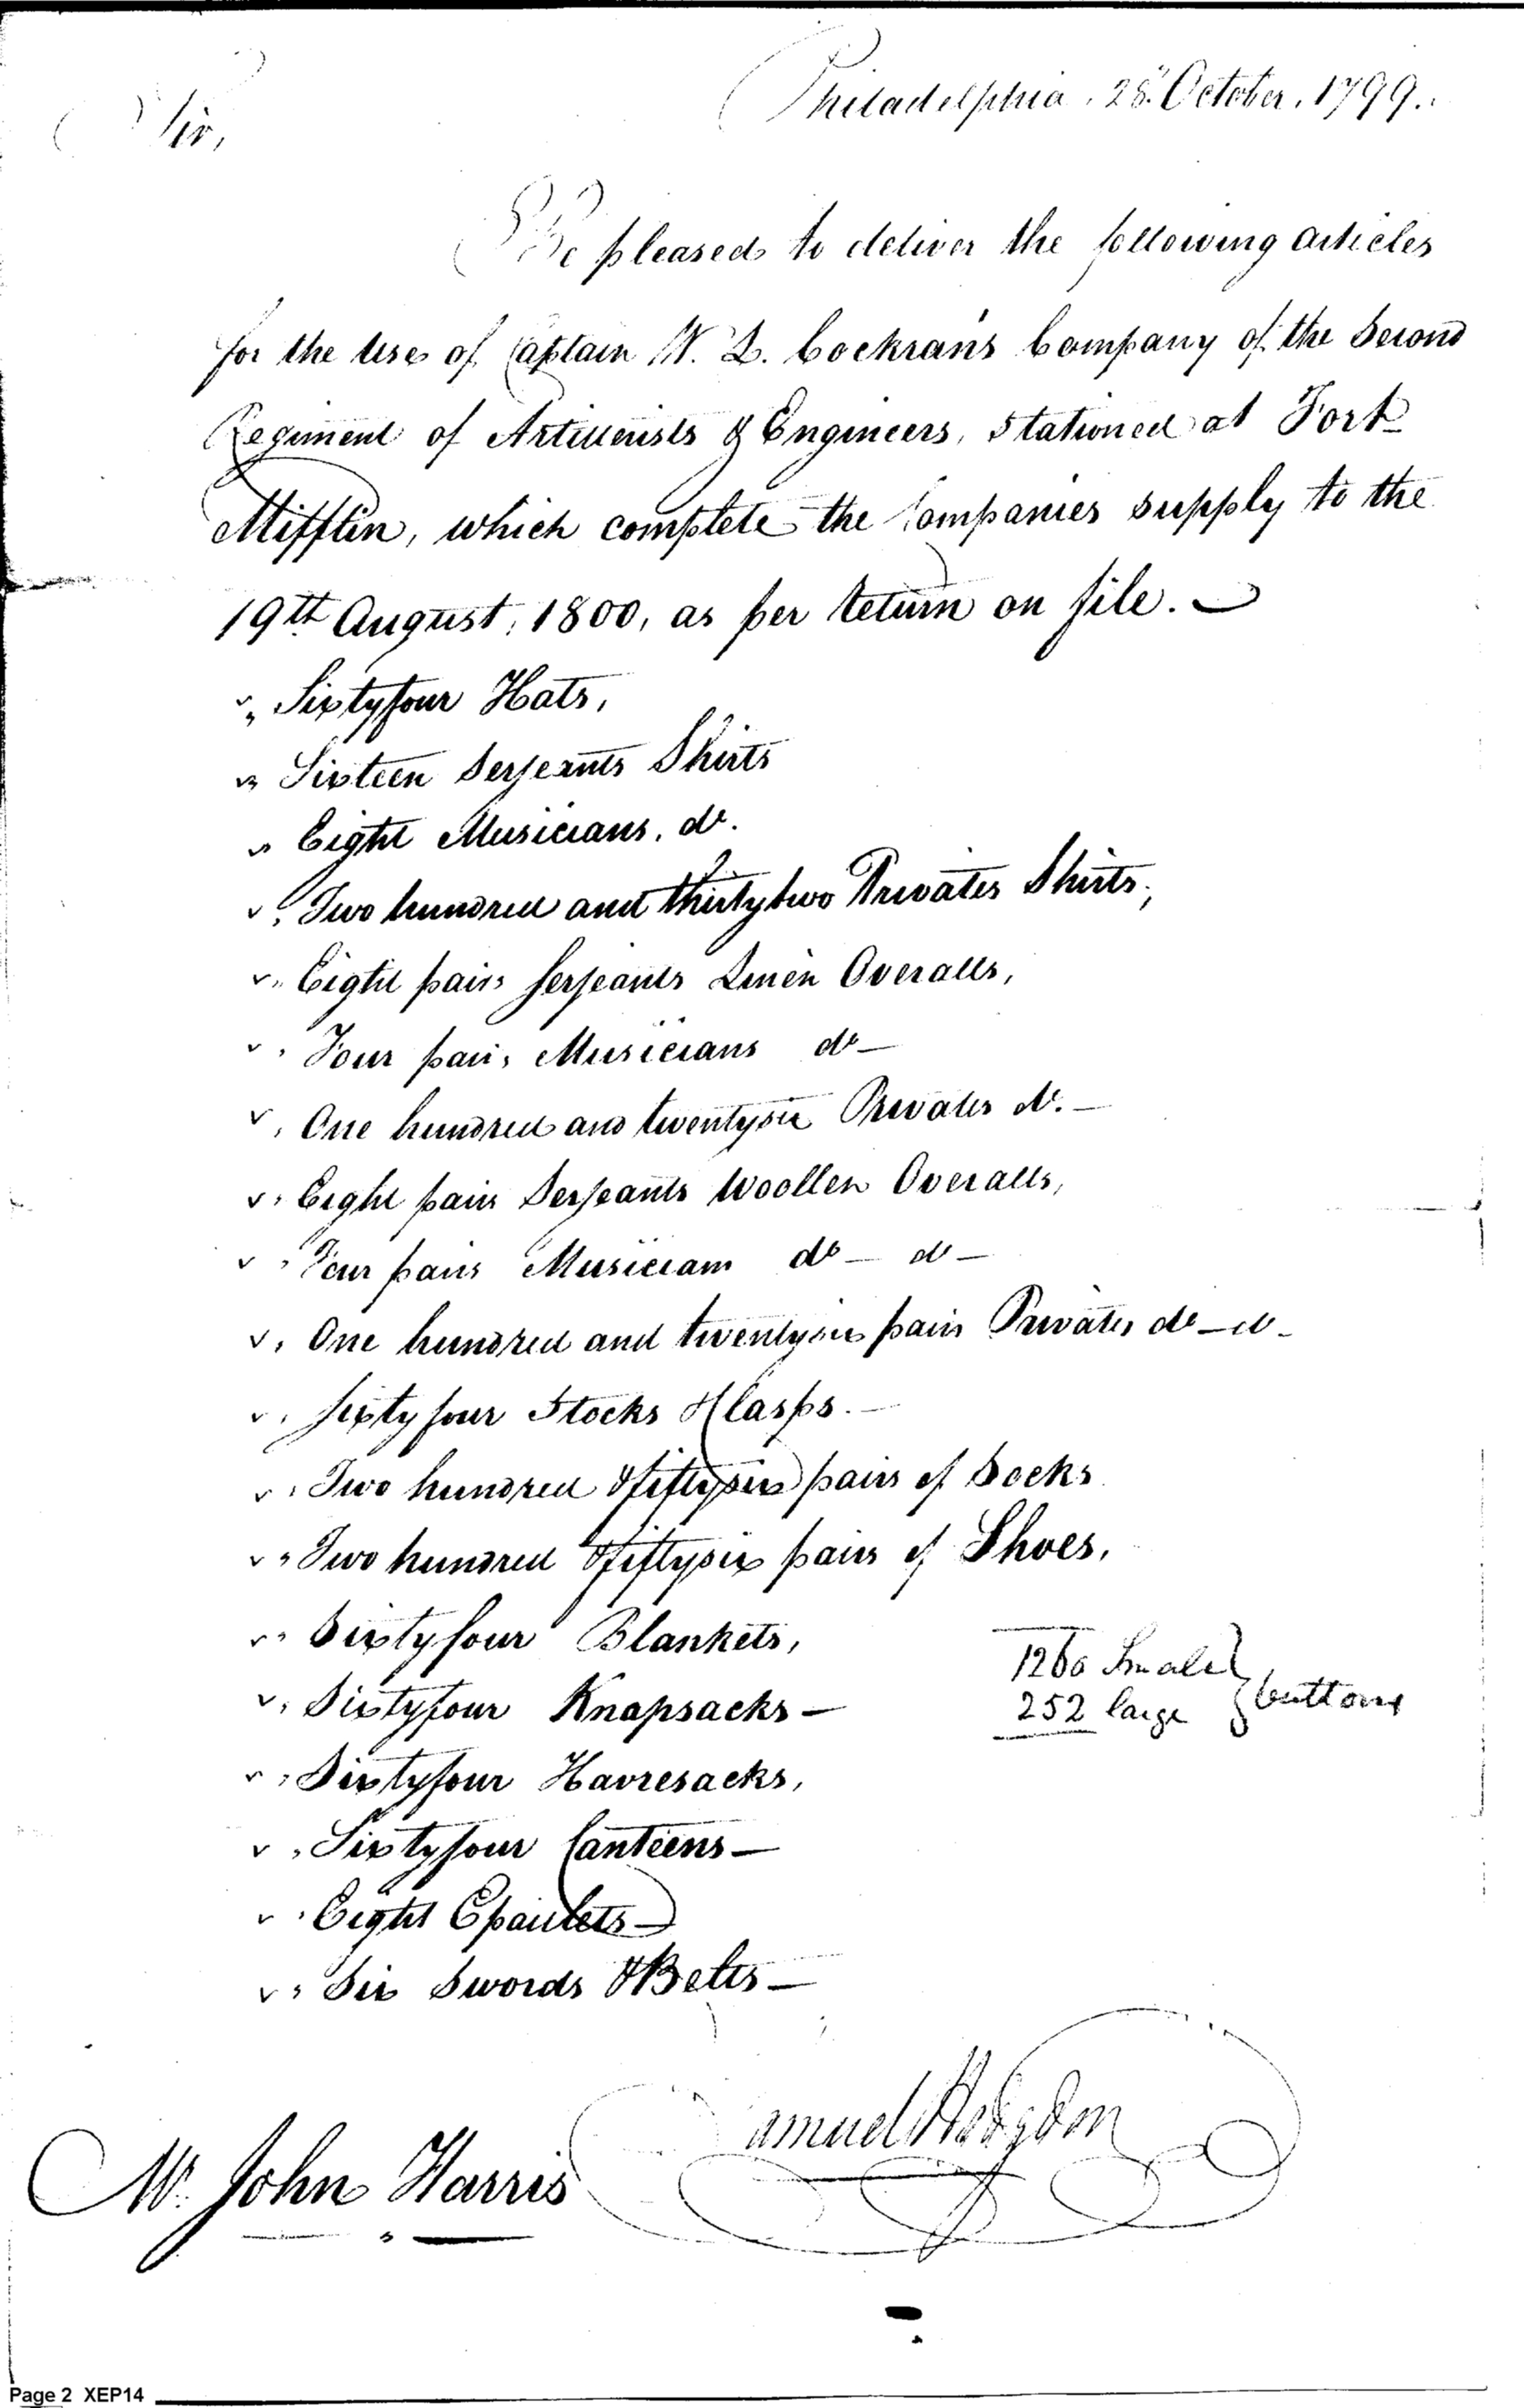 Philadelphia, 28th October, 1799.
Sir,
Be pleased to deliver the following articles
for the use of Captain W. L. Cockran's Company of the Second
Regiment of Artillerists & Engineers, stationed at Fort
Mifflin, which complete the Companies supply to the
19th August, 1800, as per return on file.
v " Sixtyfour Hats,
v " Sixteen Serjeants Shirts
v " Eight Musicians, do.
v " Two hundred and thirtytwo Privates Shirts,
v " Eight pairs Serjeants Linen Overalls,
v " Four pairs Musicians do —
v " One hundred and twentysix Privates do. —
v " Eight pairs Serjeants Woollen Overalls,
v " Four pairs Musicians do — do —
v " One hundred and twentysix pairs Privates do — do —
v " Sixtyfour Stocks & Clasps. —
v " Two hundred & fiftysix pairs of Socks
v " Two hundred & fiftysix pairs of Shoes,
v " Sixtyfour Blankets,
v " Sixtyfour Knapsacks —
1260 Small } buttons
252 large
v " Sixtyfour Havresacks,
v " Sixtyfour Canteens —
v " Eight Epaulets —
v " Six Swords & Belts —
Samuel Hodgdon
Mr. John Harris
Page 2 XEP14